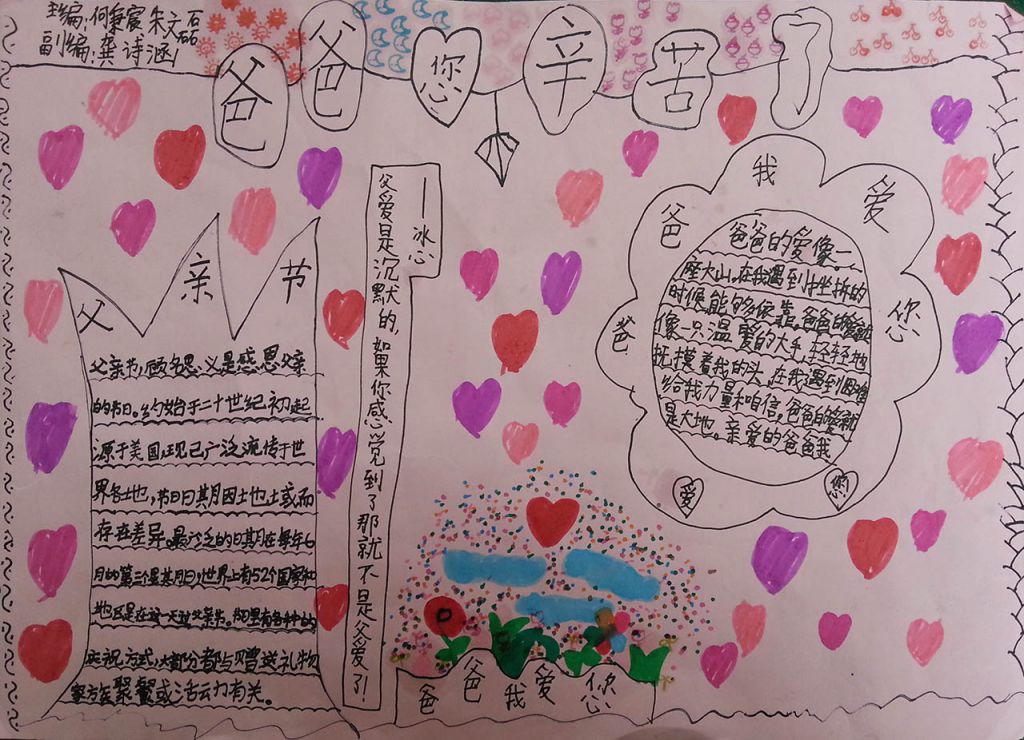 主编:何秉宸 朱文硕
副编:龚诗涵
爸爸您辛苦了
父亲节
父亲节,顾名思义是感恩父亲
的节日。约始于二十世纪初起
源于美国,现已广泛流传于世
界各地,节日日期因地域而
存在差异。最广泛的日期在每年6
月的第三个星期日,世界上有52个国家和
地区是在这一天过父亲节。节日里有各种的
庆祝方式,大部分都与赠送礼物
家族聚餐或活动有关。
——冰心
父爱是沉默的,如果你感觉到了那就不是父爱了!
爸爸我爱您
爸爸的爱像一
座大山,在我遇到挫折的
时候能够依靠,爸爸的爱就
像一只温暖的大手,轻轻地
抚摸着我的头,在我遇到困难
给我力量和自信,爸爸的爱就
是大地。亲爱的爸爸我
爱
您
爸爸我爱您